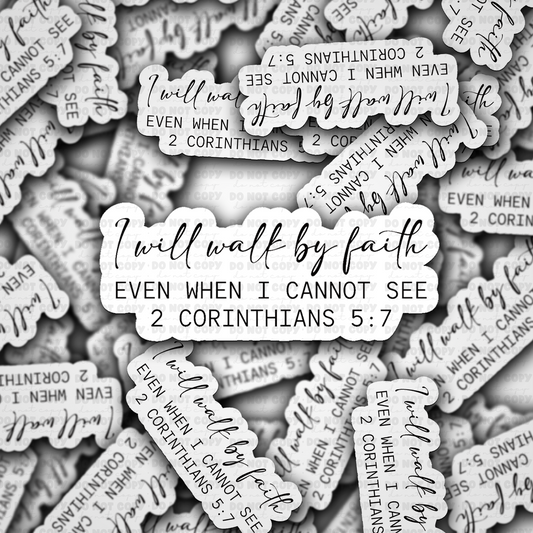 I will walk by faith
EVEN WHEN I CANNOT SEE
2 CORINTHIANS 5:7